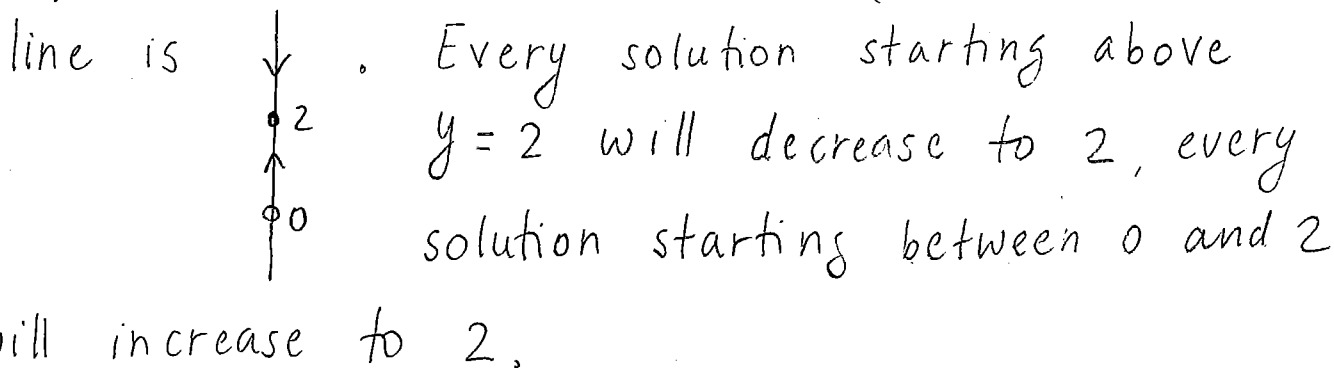 line is . Every solution starting above
2 y = 2 will decrease to 2, every
0 solution starting between 0 and 2
ill increase to 2.